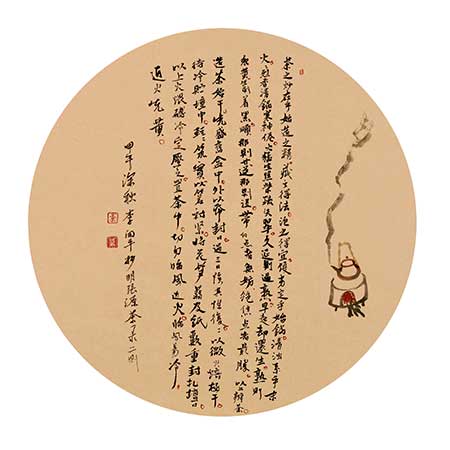 茶之妙在乎始造之精藏之得法泡之得宜優劣定乎始鍋清濁系乎末
火火烈香清鍋寒神倦火猛生焦柴疏失翠久延則過熟早起却還生熟則
犯黄生則着黑順那則甘逆那則澀帶白点者無妨絕焦点者最勝 以辨茶
造茶始干先盛舊盒中外以紙封口過三日俟其性復以微火焙極干
待冷貯壇中輕輕築實以箬衬緊將花筍箬及紙數重封扎壇口
以上火煨磚冷定壓之置茶中切勿臨風近火臨風易冷
近火先黄
甲午深秋李平抄明張源茶录二則